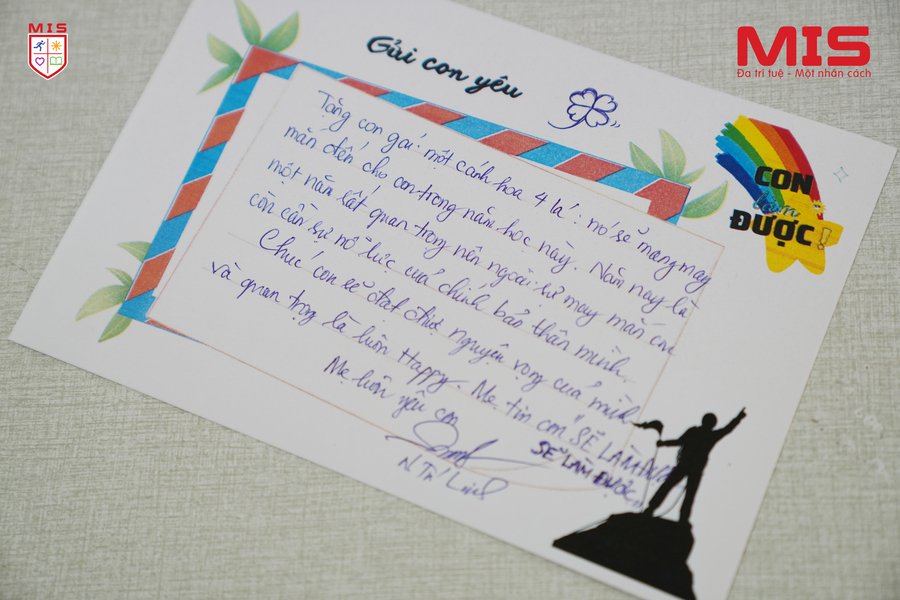 MIS
MIS
Đa trí tuệ - Một nhân cách
Gửi con yêu
CON
làm
ĐƯỢC!
Tặng con gái một cánh hoa 4 lá: nó sẽ mang may
mắn đến cho con trong năm học này. Năm nay là
một năm rất quan trọng nên ngoài sự may mắn con
còn cần sự nỗ lực của chính bản thân mình.
Chúc con sẽ đạt được nguyện vọng của mình
và quan trọng là luôn Happy. Mẹ tin con "SẼ LÀM ĐƯỢC
SẼ LÀM ĐƯỢC"
Mẹ luôn yêu con